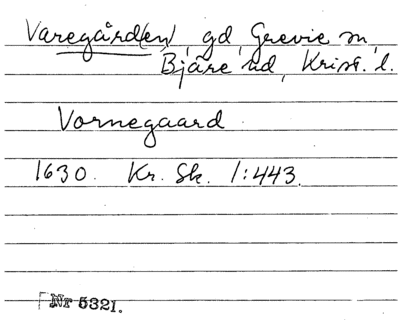 Varegård(en), gd, Grevie sn,
Bjäre hd, Krist. l.
Vornegaard
1630. Kr. Sk. 1:443.
Nr 5321.